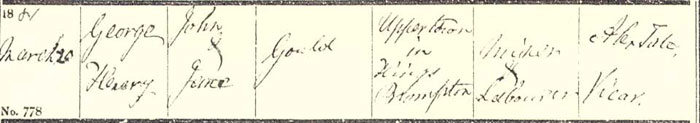 18 81 George John Uppertown
March 20 & Gould in Miner Alex Tate
Henery Jane Kings & Vicar.
Brompton Labourer
No. 778